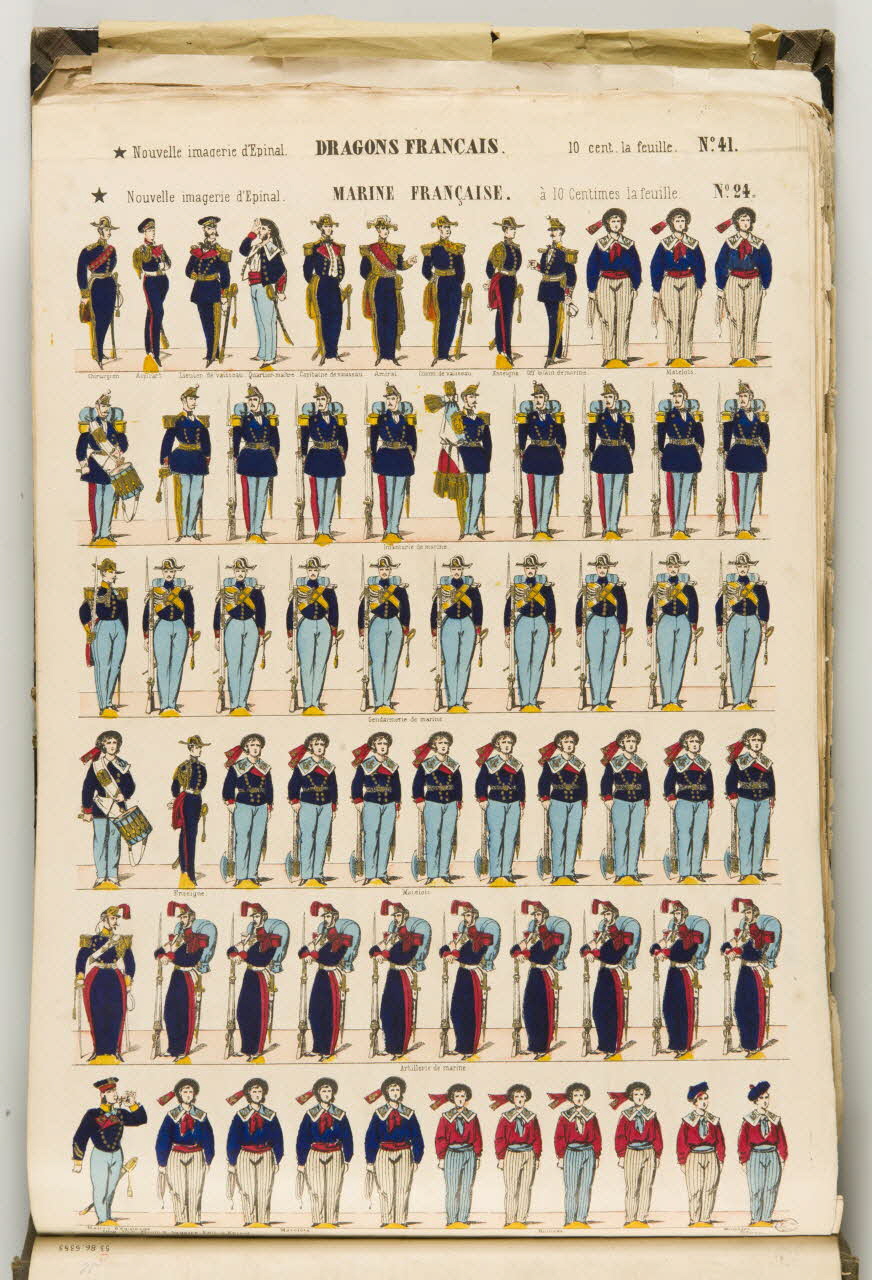 ★ Nouvelle imagerie d'Epinal. DRAGONS FRANCAIS. 10 cent. la feuille. Nº 41.
★ Nouvelle imagerie d'Epinal. MARINE FRANÇAISE. à 10 Centimes la feuille. Nº 24.
Chirurgien Aspirant Lieuten. de vaisseau. Quartier-maître Capitaine de vaisseau. Amiral de vaisseau. Enseigne de marine. Matelots.
Infanterie de marine.
Gendarmerie de marine
Enseigne. Matelots.
Artillerie de marine
Matelots.